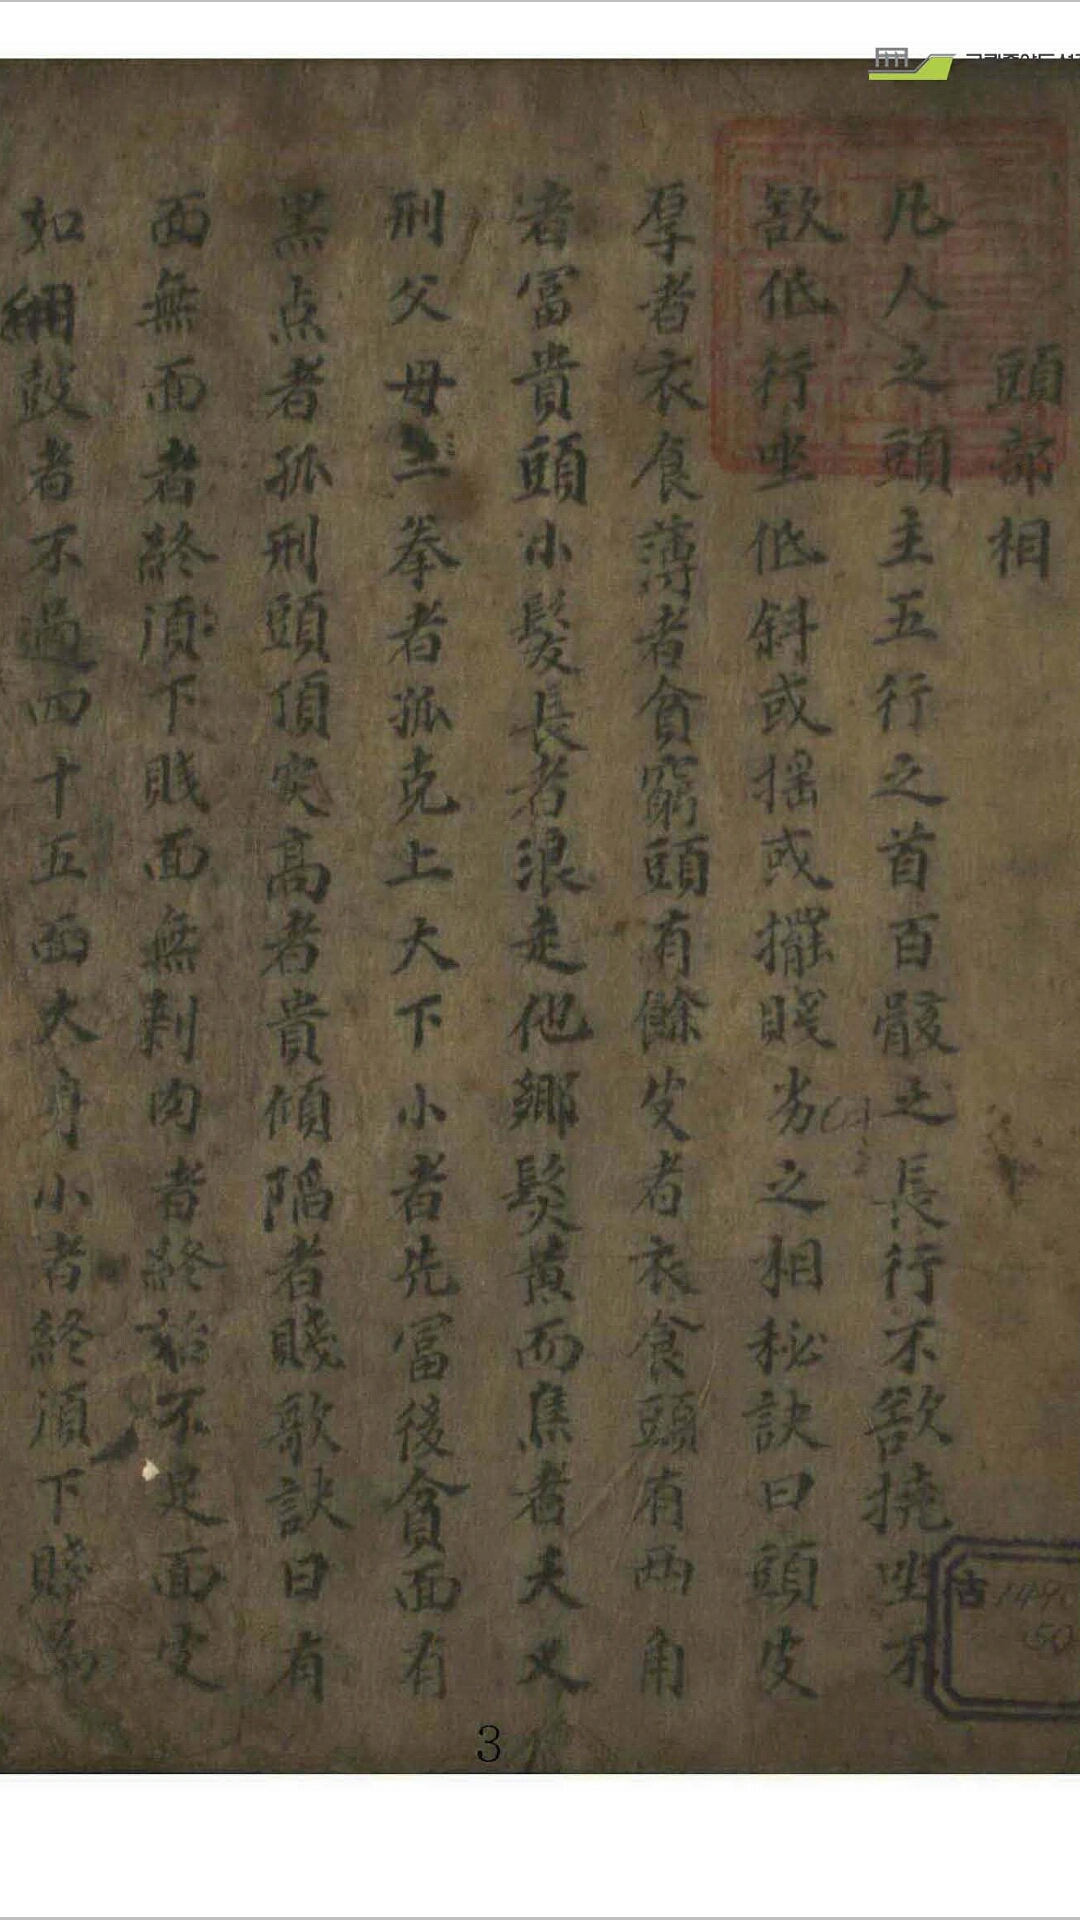 頭部相
凡人之頭主五行之首百骸之長行不欲撓坐不
欲低行坐低斜或搖或擺賤劣之相秘訣曰頭皮
厚者衣食薄者貧窮頭有餘皮者衣食頭有兩角
者冨貴頭小髮長者浪走他鄉髮黄而焦者夫又
刑父母三拳者孤克上大下小者先冨後貧面有
黒点者孤刑頭頂突高者貴傾陷者賤歌訣曰有
面無面者終湏下賎面無剩肉者終始不足面皮
如繃鼓者不過四十五面大身小者終湏下賤為
3
古